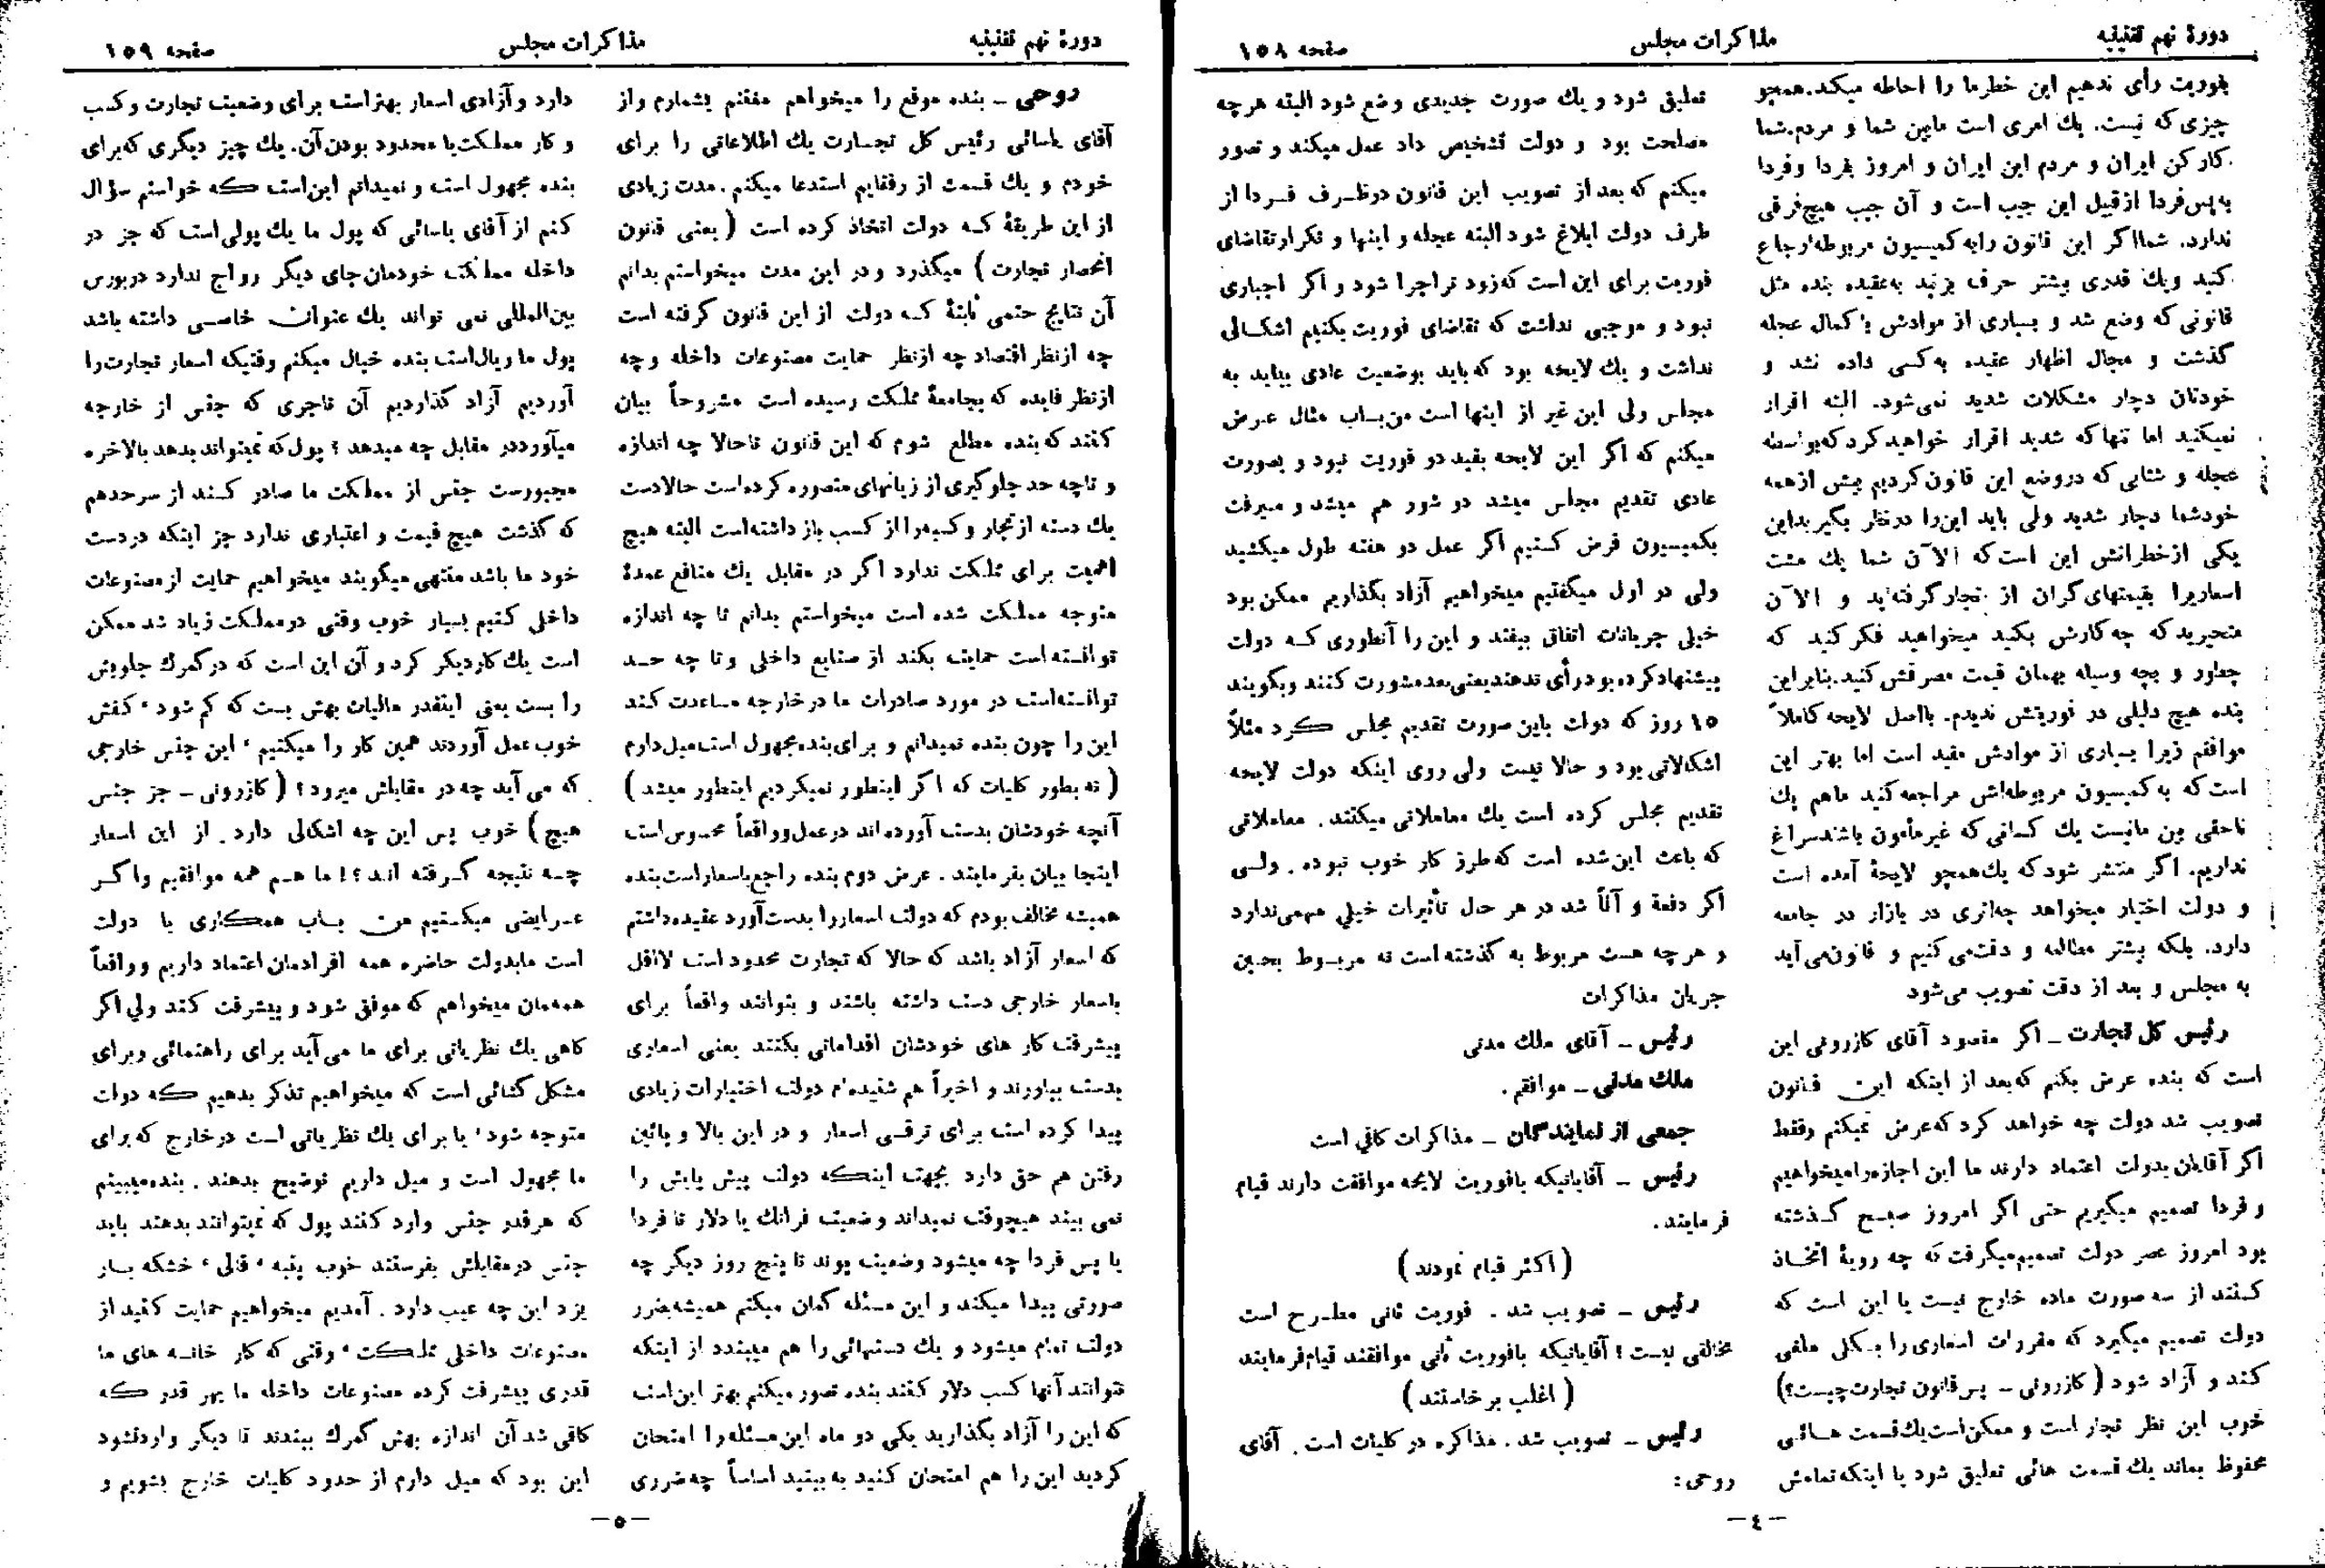 دورهٔ نهم تقنینیه
مذاکرات مجلس
صفحه ۱۵۸
بفوریت رأی ندهیم این خطر ما را احاطه میکند. همچو
چیزی که نیست. یك امری است مابین شما و مردم. شما
کارکن ایران و مردم این ایران و امروز بفردا و فردا
به پس‌فردا از قبیل این جیب است و آن جیب هیچ فرقی
ندارد. شما اگر این قانون را به کمیسیون مربوطه ارجاع
کنید و یك قدری بیشتر حرف بزنید به‌عقیده بنده مثل
قانونی که وضع شد و بسیاری از موادش با کمال عجله
گذشت و مجال اظهار عقیده به‌کسی داده نشد و
خودتان دچار مشکلات شدید نمی‌شود. البته اقرار
نمیکنید اما تنها که شدید اقرار خواهید کرد که بواسطه
عجله و شتابی که در وضع این قانون کردیم بیش از همه
خود شما دچار شدید ولی باید این را در نظر بگیرید این
یکی از خطراتش این است که الآن شما یك مشت
اسعاریرا بقیمتهای گران از تجار گرفته‌اید و الآن
متحیرید که چه کارش بکنید میخواهید فکر کنید که
چطور و بچه وسیله بهمان قیمت مصرفش کنید. بنابراین
بنده هیچ دلیلی در فوریتش ندیدم. با اصل لایحه کاملاً
موافقم زیرا بسیاری از موادش مفید است اما بهتر این
است که به کمیسیون مربوطه‌اش مراجعه کنید ماهم یك
ناحقی بین ما نیست یك کسانی که غیر مأمون باشند سراغ
نداریم. اگر منتشر شود که یك همچو لایحهٔ آمده است
و دولت اختیار میخواهد چه‌اثری در بازار در جامعه
دارد. بلکه بیشتر مطالعه و دقت می کنیم و قانون می‌آید
به مجلس و بعد از دقت تصویب می‌شود
رئیس کل تجارت ـ اگر مقصود آقای کازرونی این
است که بنده عرض بکنم که بعد از اینکه این قانون
تصویب شد دولت چه خواهد کرد که عرض نمیکنم و فقط
اگر آقایان بدولت اعتماد دارند ما این اجازه را میخواهیم
و فردا تصمیم میگیریم حتی اگر امروز صبح گذشته
بود امروز عصر دولت تصمیم میگرفت که چه رویهٔ اتخاذ
کنند از سه صورت ماده خارج نیست یا این است که
دولت تصمیم میگیرد که مقررات اسعاری را بکلی ملغی
کند و آزاد شود (کازرونی ـ پس قانون تجارت چیست؟)
خوب این نظر تجار است و ممکن است یك قسمت هائی
محفوظ بماند یك قسمت هائی تعلیق شود یا اینکه تمامش
تعلیق شود و یك صورت جدیدی وضع شود البته هر چه
مصلحت بود و دولت تشخیص داد عمل میکند و تصور
میکنم که بعد از تصویب این قانون در ظرف فردا از
طرف دولت ابلاغ شود البته عجله و اینها و تکرار تقاضای
فوریت برای این است که زودتر اجرا شود و اگر اجباری
نبود و موجبی نداشت که تقاضای فوریت بکنیم اشکالی
نداشت و یك لایحه بود که باید بوضعیت عادی بیاید به
مجلس ولی این غیر از اینها است من باب مثال عرض
میکنم که اگر این لایحه بقید دو فوریت نبود و بصورت
عادی تقدیم مجلس میشد دو شور هم میشد و میرفت
بکمیسیون فرض کنیم اگر عمل دو هفته طول میکشید
ولی در اول میگفتیم میخواهیم آزاد بگذاریم ممکن بود
خیلی جریانات اتفاق بیفتد و این را آنطوری که دولت
پیشنهاد کرده بود رأی ندهند یعنی بعد مشورت کنند و بگویند
۱۵ روز که دولت باین صورت تقدیم مجلس کرد مثلاً
اشکالاتی بود و حالا نیست ولی روی اینکه دولت لایحه
تقدیم مجلس کرده است یك معاملاتی میکنند. معاملاتی
که باعث این شده است که طرز کار خوب نبوده. ولی
اگر دفعةً و آناً شد در هر حال تأثیرات خیلی مهمی ندارد
و هر چه هست مربوط به گذشته است نه مربوط بحین
جریان مذاکرات
رئیس ـ آقای ملك مدنی
ملك مدنی ـ موافقم.
جمعی از نمایندگان ـ مذاکرات کافی است
رئیس ـ آقایانیکه بافوریت لایحه موافقت دارند قیام
فرمایند.
(اکثر قیام نمودند)
رئیس ـ تصویب شد. فوریت ثانی مطرح است
مخالفی نیست؟ آقایانیکه بافوریت ثانی موافقند قیام فرمایند
(اغلب برخاستند)
رئیس ـ تصویب شد. مذاکره در کلیات است. آقای
روحی:
ـ٤ـ
دورهٔ نهم تقنینیه
مذاکرات مجلس
صفحه ۱۵۹
روحی ـ بنده موقع را میخواهم مغتنم بشمارم و از
آقای یاسائی رئیس کل تجارت یك اطلاعاتی را برای
خودم و یك قسمت از رفقایم استدعا میکنم. مدت زیادی
از این طریقهٔ که دولت اتخاذ کرده است (یعنی قانون
انحصار تجارت) میگذرد و در این مدت میخواستم بدانم
آن نتایج حتمی ثابتهٔ که دولت از این قانون گرفته است
چه از نظر اقتصاد چه از نظر حمایت مصنوعات داخله و چه
از نظر فایده که بجامعهٔ مملکت رسیده است مشروحاً بیان
کنند که بنده مطلع شوم که این قانون تا حالا چه اندازه
و تا چه حد جلوگیری از زیانهای متصوره کرده است حالا دست
یك دسته از تجار و کسبه را از کسب باز داشته است البته هیچ
اهمیت برای مملکت ندارد اگر در مقابل یك منافع عمدهٔ
متوجه مملکت شده است میخواستم بدانم تا چه اندازه
توانسته است حمایت بکند از صنایع داخلی و تا چه حد
توانسته است در مورد صادرات ما در خارجه مساعدت کند
این را چون بنده نمیدانم و برای بنده مجهول است میل دارم
(نه بطور کلیات که اگر اینطور نمیکردیم اینطور میشد)
آنچه خودشان بدست آورده‌اند در عمل و واقعاً محسوس است
اینجا بیان بفرمایند. عرض دوم بنده راجع باسعار است بنده
همیشه مخالف بودم که دولت اسعار را بدست آورد عقیده داشتم
که اسعار آزاد باشد که حالا که تجارت محدود است لااقل
باسعار خارجی دست داشته باشند و بتوانند واقعاً برای
پیشرفت کار های خودشان اقداماتی بکنند یعنی اسعاری
بدست بیاورند و اخیراً هم شنیده‌ام دولت اختیارات زیادی
پیدا کرده است برای ترقی اسعار و در این بالا و پائین
رفتن هم حق دارد بجهت اینکه دولت پیش پایش را
نمی بیند هیچوقت نمیداند وضعیت فرانك یا دلار تا فردا
یا پس فردا چه میشود وضعیت پوند تا پنج روز دیگر چه
صورتی پیدا میکند و این مسئله گمان میکنم همیشه بضرر
دولت تمام میشود و یك دستهائی را هم میبندد از اینکه
نتوانند آنها کسب دلار کنند بنده تصور میکنم بهتر این است
که این را آزاد بگذارید یکی دو ماه این مسئله را امتحان
کردید این را هم امتحان کنید به بینید اساساً چه ضرری
دارد و آزادی اسعار بهتر است برای وضعیت تجارت و کسب
و کار مملکت یا محدود بودن آن. یك چیز دیگری که برای
بنده مجهول است و نمیدانم این است که خواستم سؤال
کنم از آقای یاسائی که پول ما یك پولی است که جز در
داخله مملکت خودمان جای دیگر رواج ندارد در بورس
بین‌المللی نمی تواند یك عنوان خاصی داشته باشد
پول ما ریال است بنده خیال میکنم وقتیکه اسعار تجارت را
آوردیم آزاد گذاردیم آن تاجری که جنس از خارجه
میآورد در مقابل چه میدهد؟ پول که نمیتواند بدهد بالاخره
مجبورست جنس از مملکت ما صادر کند از سرحد هم
که گذشت هیچ قیمت و اعتباری ندارد جز اینکه در دست
خود ما باشد منتهی میگویند میخواهیم حمایت از مصنوعات
داخلی کنیم بسیار خوب وقتی در مملکت زیاد شد ممکن
است یك کار دیگر کرد و آن این است که در گمرك جلویش
را بست یعنی اینقدر مالیات بهش بست که کم شود، کفش
خوب عمل آوردند همین کار را میکنیم، این جنس خارجی
که می آید چه در مقابلش میرود؟ (کازرونی ـ جز جنس
هیچ) خوب پس این چه اشکالی دارد. از این اسعار
چه نتیجه گرفته اند؟! ما هم همه موافقیم و اگر
عرایضی میکنیم من باب همکاری با دولت
است ما بدولت حاضره همه افرادمان اعتماد داریم و واقعاً
همه‌مان میخواهم که موفق شود و پیشرفت کند ولی اگر
گاهی یك نظریاتی برای ما می آید برای راهنمائی و برای
مشکل گشائی است که میخواهیم تذکر بدهیم که دولت
متوجه شود، یا برای یك نظریاتی است در خارج که برای
ما مجهول است و میل داریم توضیح بدهند. بنده میبینم
که هر قدر جنس وارد کنند پول که نمیتوانند بدهند باید
جنس در مقابلش بفرستند خوب پنبه، قالی، خشکه بار
یزد این چه عیب دارد. آمدیم میخواهیم حمایت کنید از
مصنوعات داخلی مملکت، وقتی که کار خانه های ما
قدری پیشرفت کرده مصنوعات داخله ما بهر قدر که
کافی شد آن اندازه بهش گمرك ببندند تا دیگر وارد نشود
این بود که میل دارم از حدود کلیات خارج بشویم و
ـ٥ـ